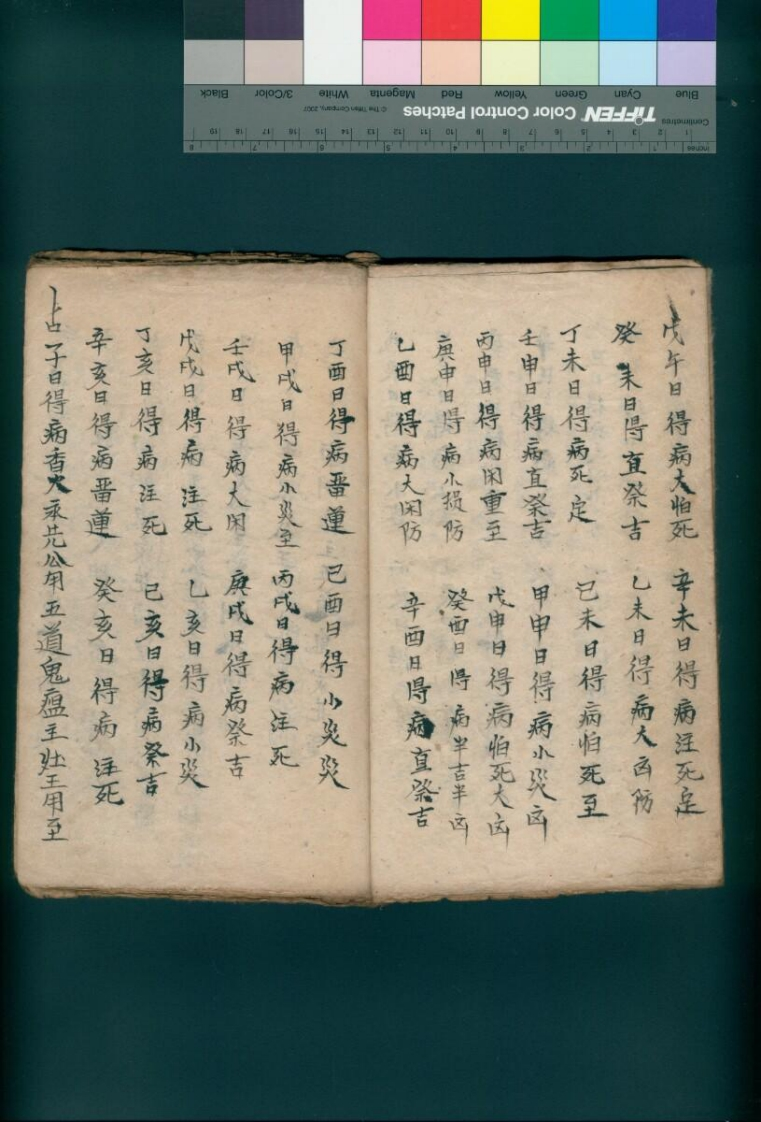 戊午日得病大怕死 辛未日得病注死定
癸未日得直祭吉 乙未日得病大凶防
丁未日得病死定 己未日得病怕死至
壬申日得病直祭吉 甲申日得病小災凶
丙申日得病闲重至 戊申日得病怕死大凶
庚申日得病小损防 癸酉日得病半吉半凶
乙酉日得病大闲防 辛酉日得病直祭吉
丁酉日得病畨蓮 己酉日得小災災
甲戌日得病小災至 丙戌日得病注死
壬戌日得病大闲 庚戌日得病祭吉
戊戌日得病注死 乙亥日得病小災
丁亥日得病注死 己亥日得病祭吉
辛亥日得病畨蓮 癸亥日得病注死
占子日得病香火 用五道鬼瘟王 用至
Blue Cyan Green Yellow Red Magenta White 3/Color Black
TIFFEN Color Control Patches © The Tiffen Company, 2007
Centimetres 1 2 3 4 5 6 7 8 9 10 11 12 13 14 15 16 17 18 19
Inches 1 2 3 4 5 6 7 8